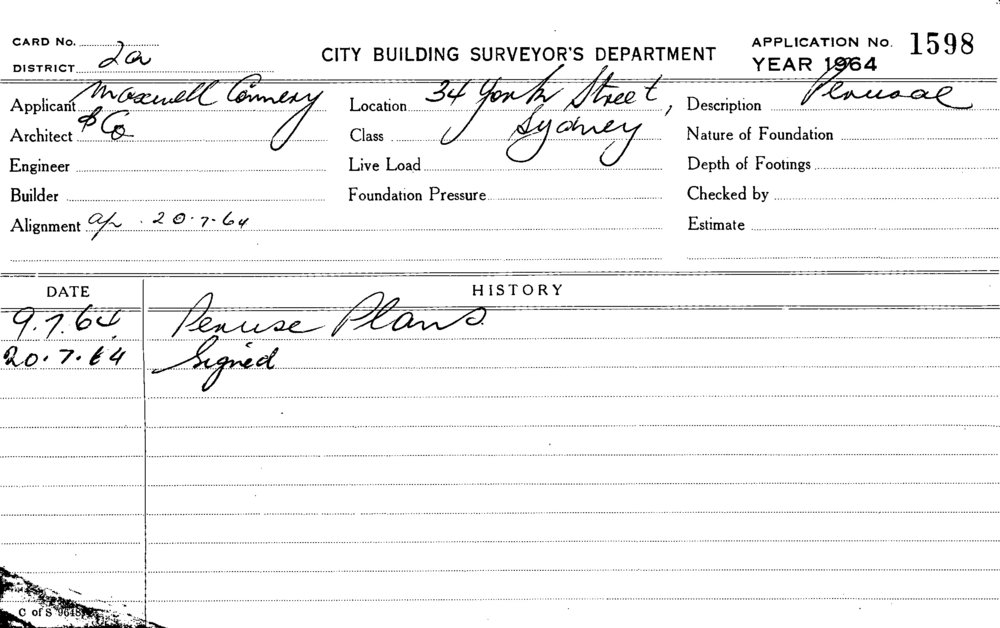 CARD No.
DISTRICT 2a
CITY BUILDING SURVEYOR'S DEPARTMENT
APPLICATION No. 1598
YEAR 1964
Applicant Maxwell Connery
& Co
Location 34 York Street,
Sydney
Description Perusal
Architect
Class
Nature of Foundation
Engineer
Live Load
Depth of Footings
Builder
Foundation Pressure
Checked by
Alignment ap. 20.7.64
Estimate
DATE HISTORY
9.7.64 Peruse Plans
20.7.64 Signed
C of S 9648